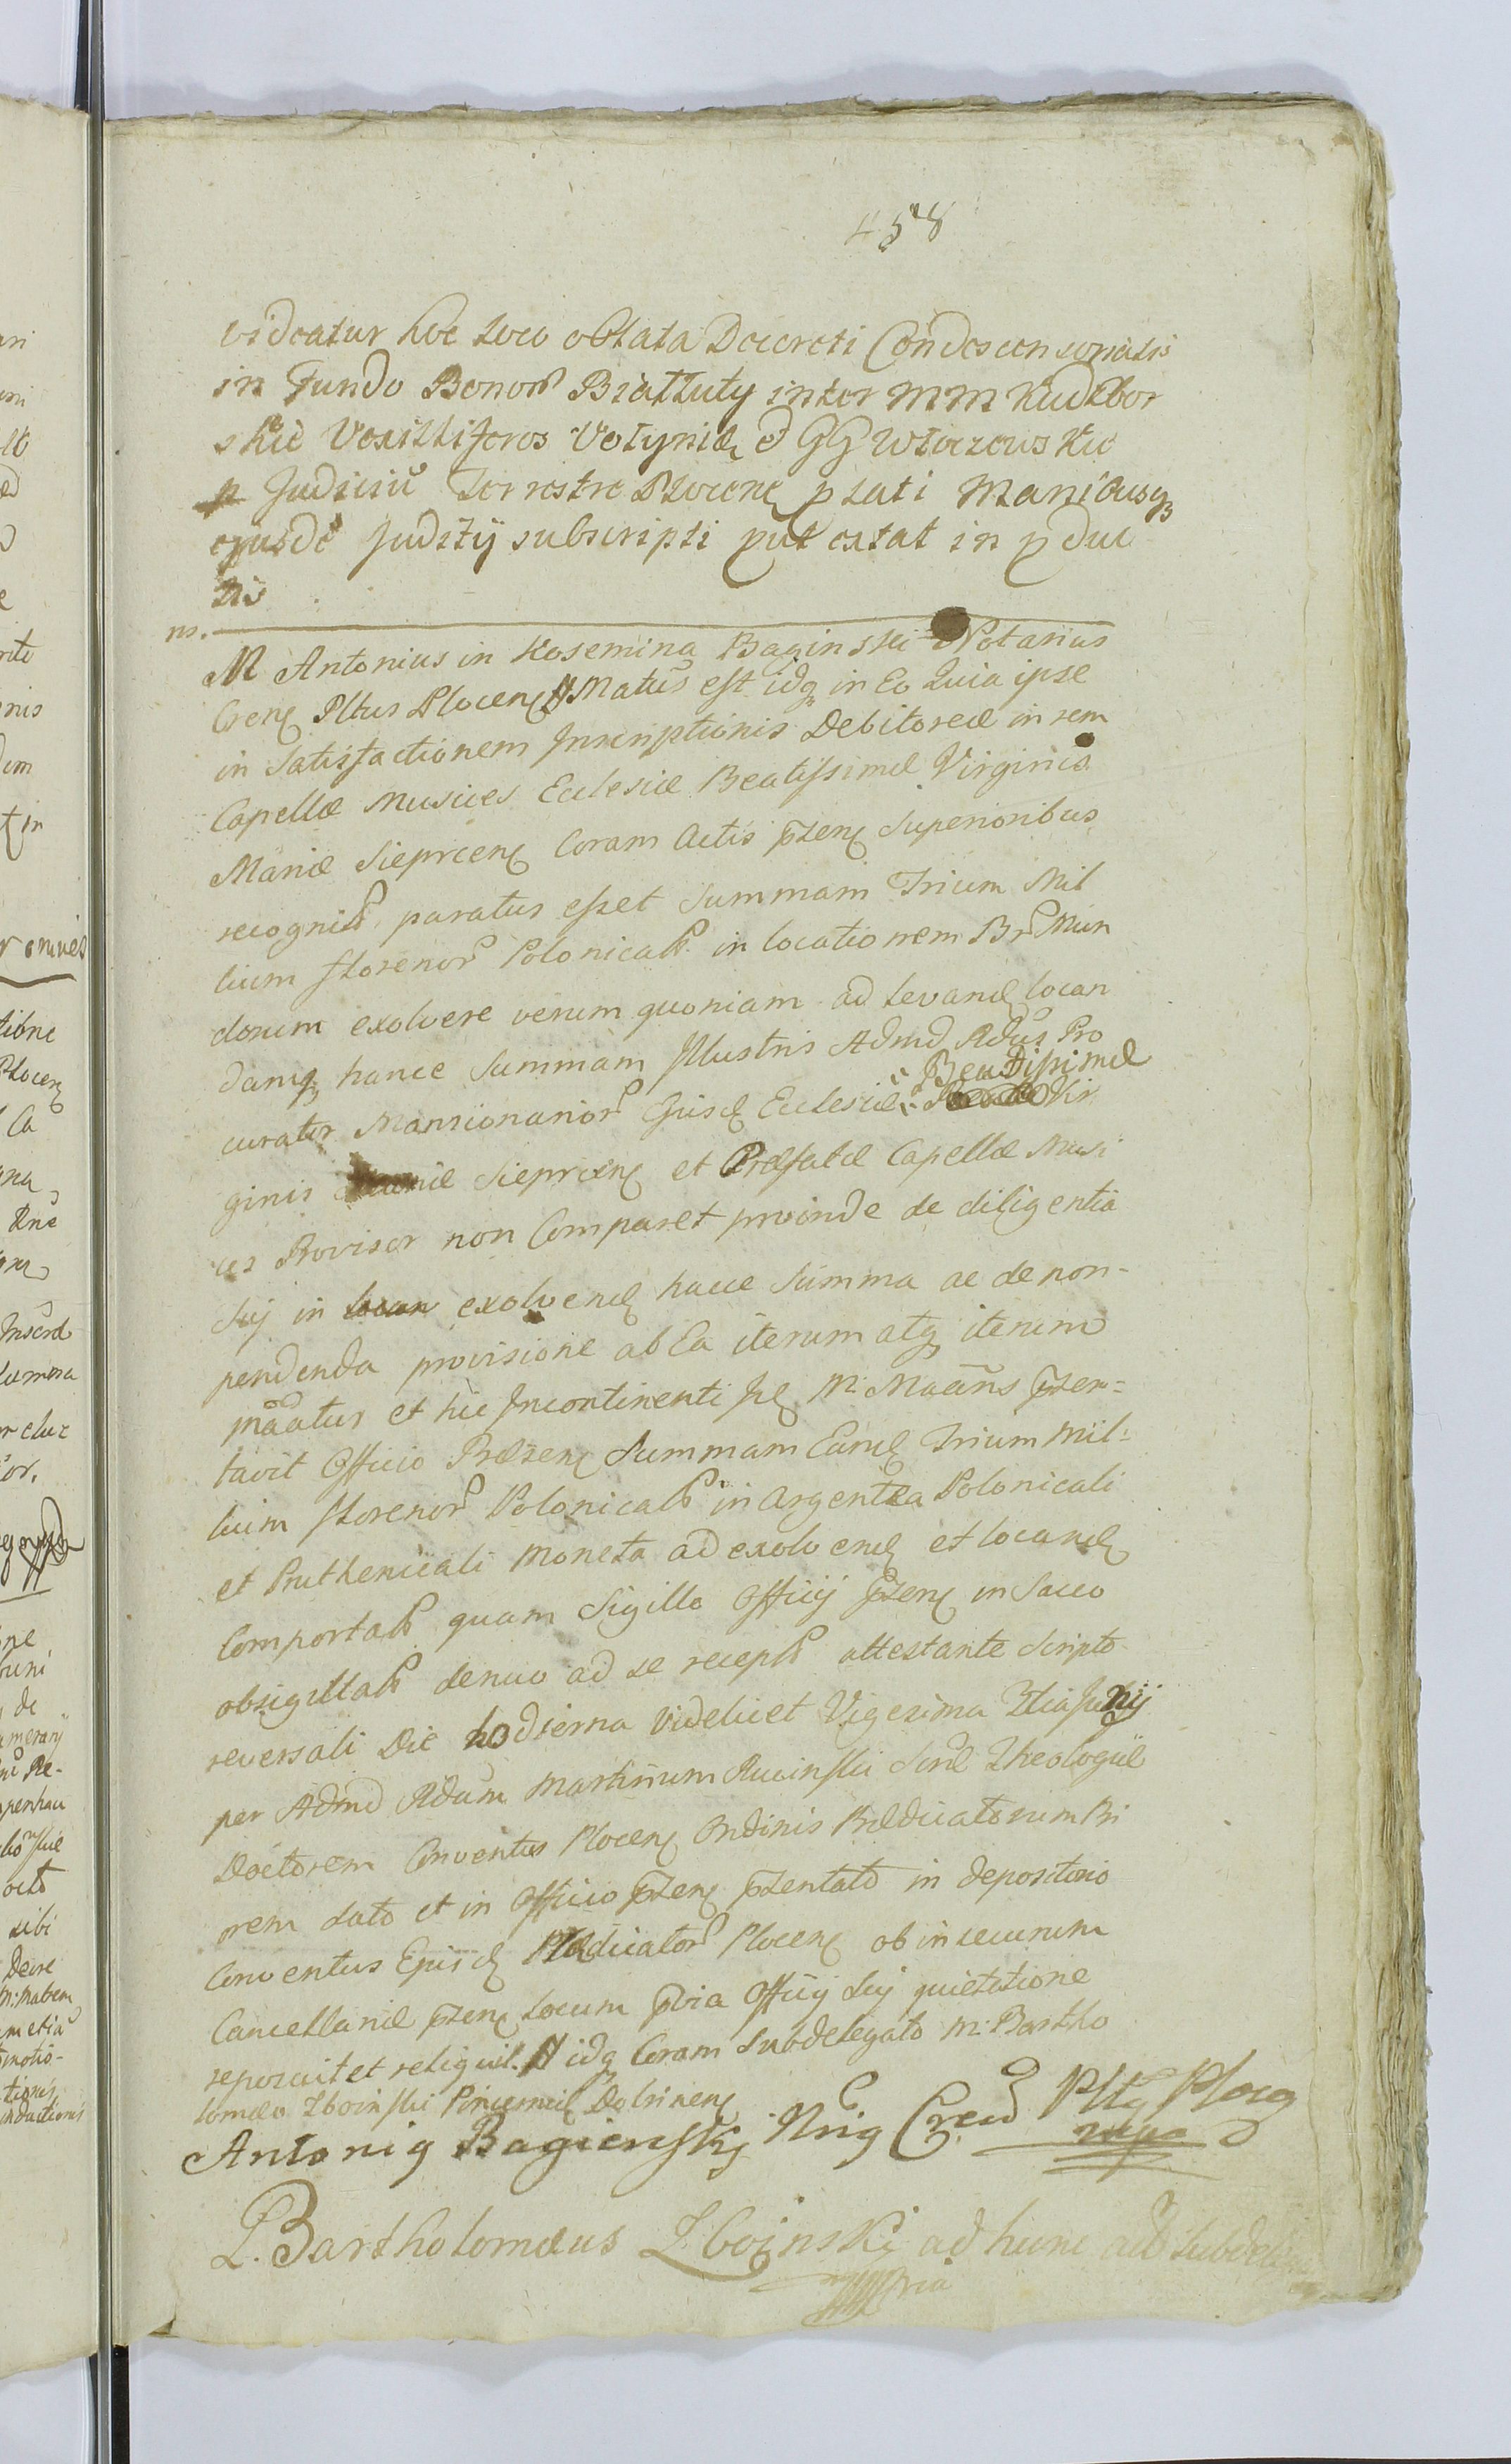 458
videatur hoc loco oblata Decreti Condescensorialis
in Fundo Bonor Białłuty inter MM Kudzbor
skie Vexilliferos Volyniæ & GG Włoczewskie
p Judiciū Terrestre Plocen lati Manibusq
ejusdē Judizij subscripti put extat in p duc
tis
M Antonius in Kosemina Baginski Notarius
Cren Pltus Plocen Matus est idq in Eo Quia ipse
in Satisfactionem Inscriptionis Debitoreæ in rem
Capellæ Musices Ecclesiæ Beatissimæ Virginis
Mariæ Sieprcen Coram Actis pzen Superioribus
recognit paratus esset Summam Trium Mil
lium florenor Polonical in locationem Br Mun
dorum exolvere verum quoniam ad levand locan
damq hance Summam Illustris Admd Rdus Pro
curator Mansionarior Ejusd Ecclesiæ Beatissimæ Vir
ginis Mariæ Sieprcen et Præfatæ Capellæ Musi
ces Provisor non Comparet proinde de diligentia
Sŭj in exolvend hacce Summa ac de non-
pendenda provisione ab Ea iterum atq iterum
māatur et hic Incontinenti M: Maāns pzen=
tavit Officio Præzen Summam Eand Trium Mil=
lium florenor Polonical in Argentea Polonicali
et Pruthenicali Moneta ad exolvend et locand
Comportat quam Sigillo Officij pzen in Sacco
obsigillat denuo ad se recept attestante Scripto
reversali Die hodierna videlicet Vigesima Junij
per Admd Rdum Martinum Rucinski Scræ Theologiæ
Doctorem Conventus Plocen Ordinis Prædicatorum Pri
orem dato et in Officio pzen pzentato in depositorio
Conventus Ejusd Prædicator Plocen ob insecurum
Cancellariæ pzen Locum pvia Officij Sŭj quietatione
reposuit et reliquit. idq Coram Subdelegato M: Bartho
lomæo Zboinski Pincernid Dobrinen
Antonig Bagienskj Nrig Cren Pltg Plocg
mpp
L. Bartholomæus Zboinskj ad hunc